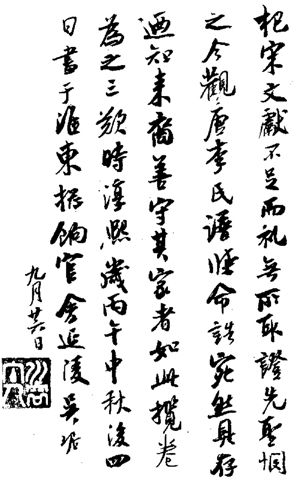 杞宋文獻不足而礼無所取證先聖惘
之今觀唐李氏譜牒命誥宛然具存
廼知来裔善守其家者如此攬卷
為之三歎時淳熙歲丙午中秋後四
日書于淮東揔餉官舍延陵吳琚
九月廿六日